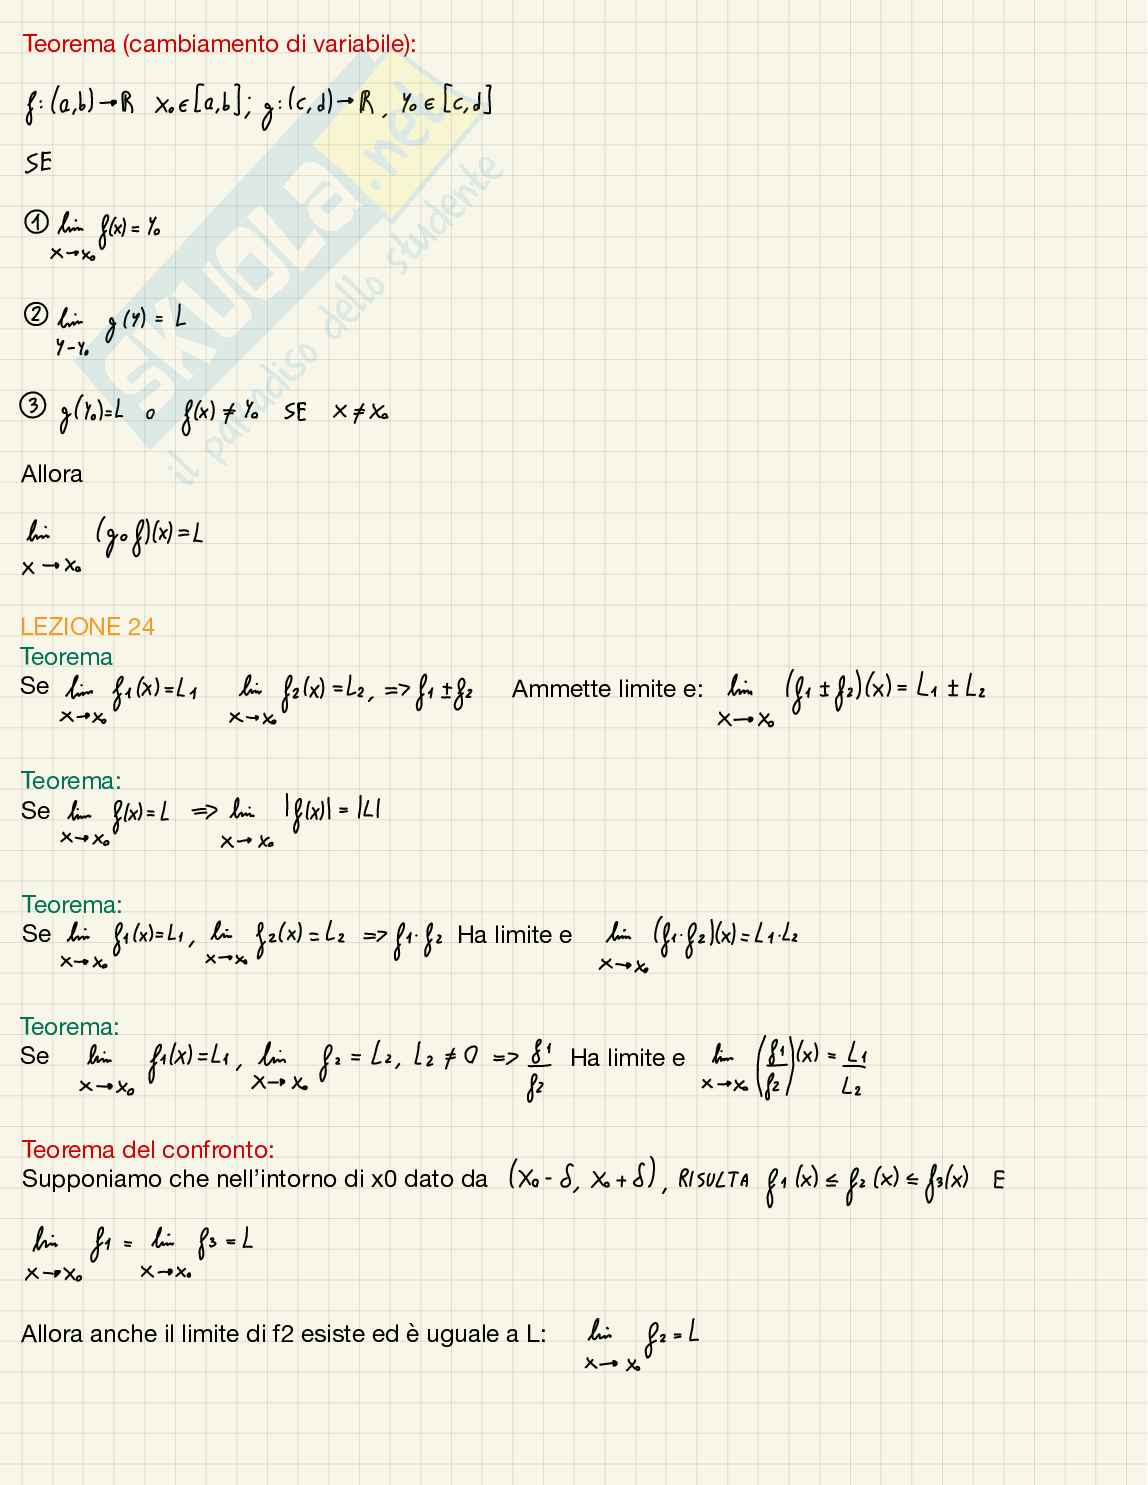 Teorema (cambiamento di variabile):
f: (a,b) → ℝ x₀ ∈ [a,b]; g: (c,d) → ℝ, y₀ ∈ [c,d]
SE
① lim f(x) = y₀
x→x₀
② lim g(y) = L
y-y₀
③ g(y₀)=L o f(x) ≠ y₀ SE x ≠ x₀
Allora
lim (g∘f)(x) = L
x→x₀
LEZIONE 24
Teorema
Se lim f₁(x)=L₁ lim f₂(x)=L₂, => f₁ ± f₂ Ammette limite e: lim (f₁ ± f₂)(x) = L₁ ± L₂
x→x₀ x→x₀ x→x₀
Teorema:
Se lim f(x)=L => lim |f(x)| = |L|
x→x₀ x→x₀
Teorema:
Se lim f₁(x)=L₁, lim f₂(x)=L₂ => f₁·f₂ Ha limite e lim (f₁·f₂)(x)=L₁·L₂
x→x₀ x→x₀ x→x₀
Teorema:
Se lim f₁(x)=L₁, lim f₂ = L₂, L₂ ≠ 0 => f₁/f₂ Ha limite e lim (f₁/f₂)(x) = L₁/L₂
x→x₀ x→x₀ x→x₀
Teorema del confronto:
Supponiamo che nell'intorno di x0 dato da (x₀-δ, x₀+δ), RISULTA f₁(x) ≤ f₂(x) ≤ f₃(x) E
lim f₁ = lim f₃ = L
x→x₀ x→x₀
Allora anche il limite di f2 esiste ed è uguale a L: lim f₂ = L
x→x₀
SKUOLA.net
il paradiso dello studente